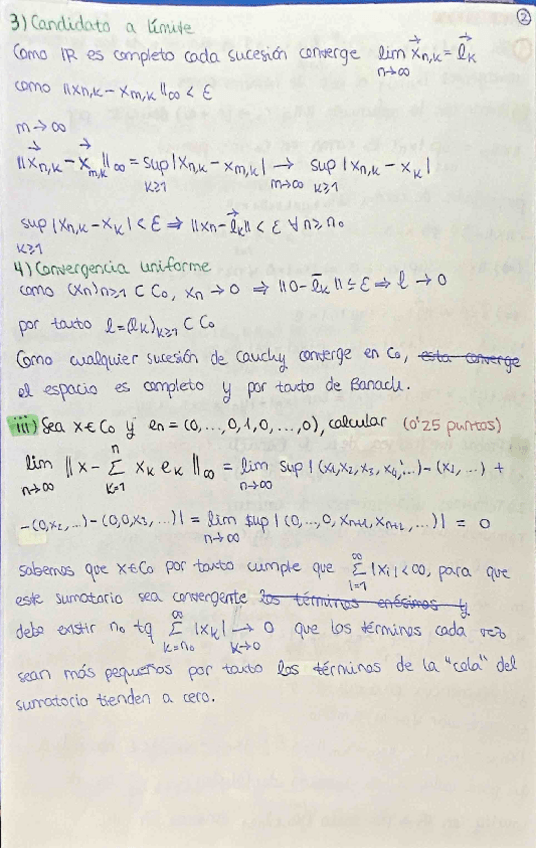 ②
3) Candidato a límite
Como ℝ es completo cada sucesión converge lim_{n→∞} \vec{x}_{n,k} = \vec{l}_k
como ||x_{n,k} - x_{m,k}||_∞ < ε
m→∞
||\vec{x}_{n,k} - \vec{x}_{m,k}||_∞ = sup_{k≥1} |x_{n,k} - x_{m,k}| →_{m→∞} sup_{k≥1} |x_{n,k} - x_k|
sup_{k≥1} |x_{n,k} - x_k| < ε ⇒ ||x_n - \vec{l}_k|| < ε ∀n≥n_0
4) Convergencia uniforme
como (x_n)_{n≥1} ⊂ C_0, x_n → 0 ⇒ ||0 - \bar{l}_k|| ≤ ε ⇒ l → 0
por tanto l = (l_k)_{k≥1} ⊂ C_0
Como cualquier sucesión de Cauchy converge en C_0, ~~esta converge~~
el espacio es completo y por tanto de Banach.
iii) Sea x∈C_0 y en = (0,...,0,1,0,...,0), calcular (0'25 puntos)
lim_{n→∞} ||x - Σ_{k=1}^{n} x_k e_k||_∞ = lim_{n→∞} sup |(x_1,x_2,x_3,x_4,...) - (x_1,...) +
-(0,x_2,...) - (0,0,x_3,...)| = lim_{n→∞} sup |(0,...,0,x_{n+1},x_{n+2},...)| = 0
sabemos que x∈C_0 por tanto cumple que Σ_{i=1}^{∞} |x_i| < ∞, para que
este sumatorio sea convergente ~~los términos enésimos y~~
debe existir n_0 tq Σ_{k=n_0}^{∞} |x_k| →_{k→0} 0 que los términos cada vez
sean más pequeños por tanto los términos de la "cola" del
sumatorio tienden a cero.